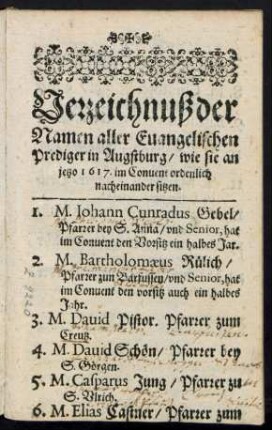 Verzeichnuß der
Namen aller Euangelischen
Prediger in Augsburg / wie sie an
jetzo 1617. im Conuent ordenlich
nacheinander sitzen.
1. M. Iohann Cunradus Gebel /
Pfarrer bey S. Anna / vnd Senior, hat
im Conuent den Vorsitz ein halbes Jar.
2. M. Bartholomæus Rülich /
Pfarrer zum Barfussen / vnd Senior, hat
im Conuent den vorsitz auch ein halbes
Jahr.
3. M. Dauid Pistor. Pfarrer zum
Creutz.
4. M. Dauid Schön / Pfarrer bey
S. Görgen.
5. M. Casparus Jung / Pfarrer zu
S. Vlrich.
6. M. Elias Castner / Pfarrer zum